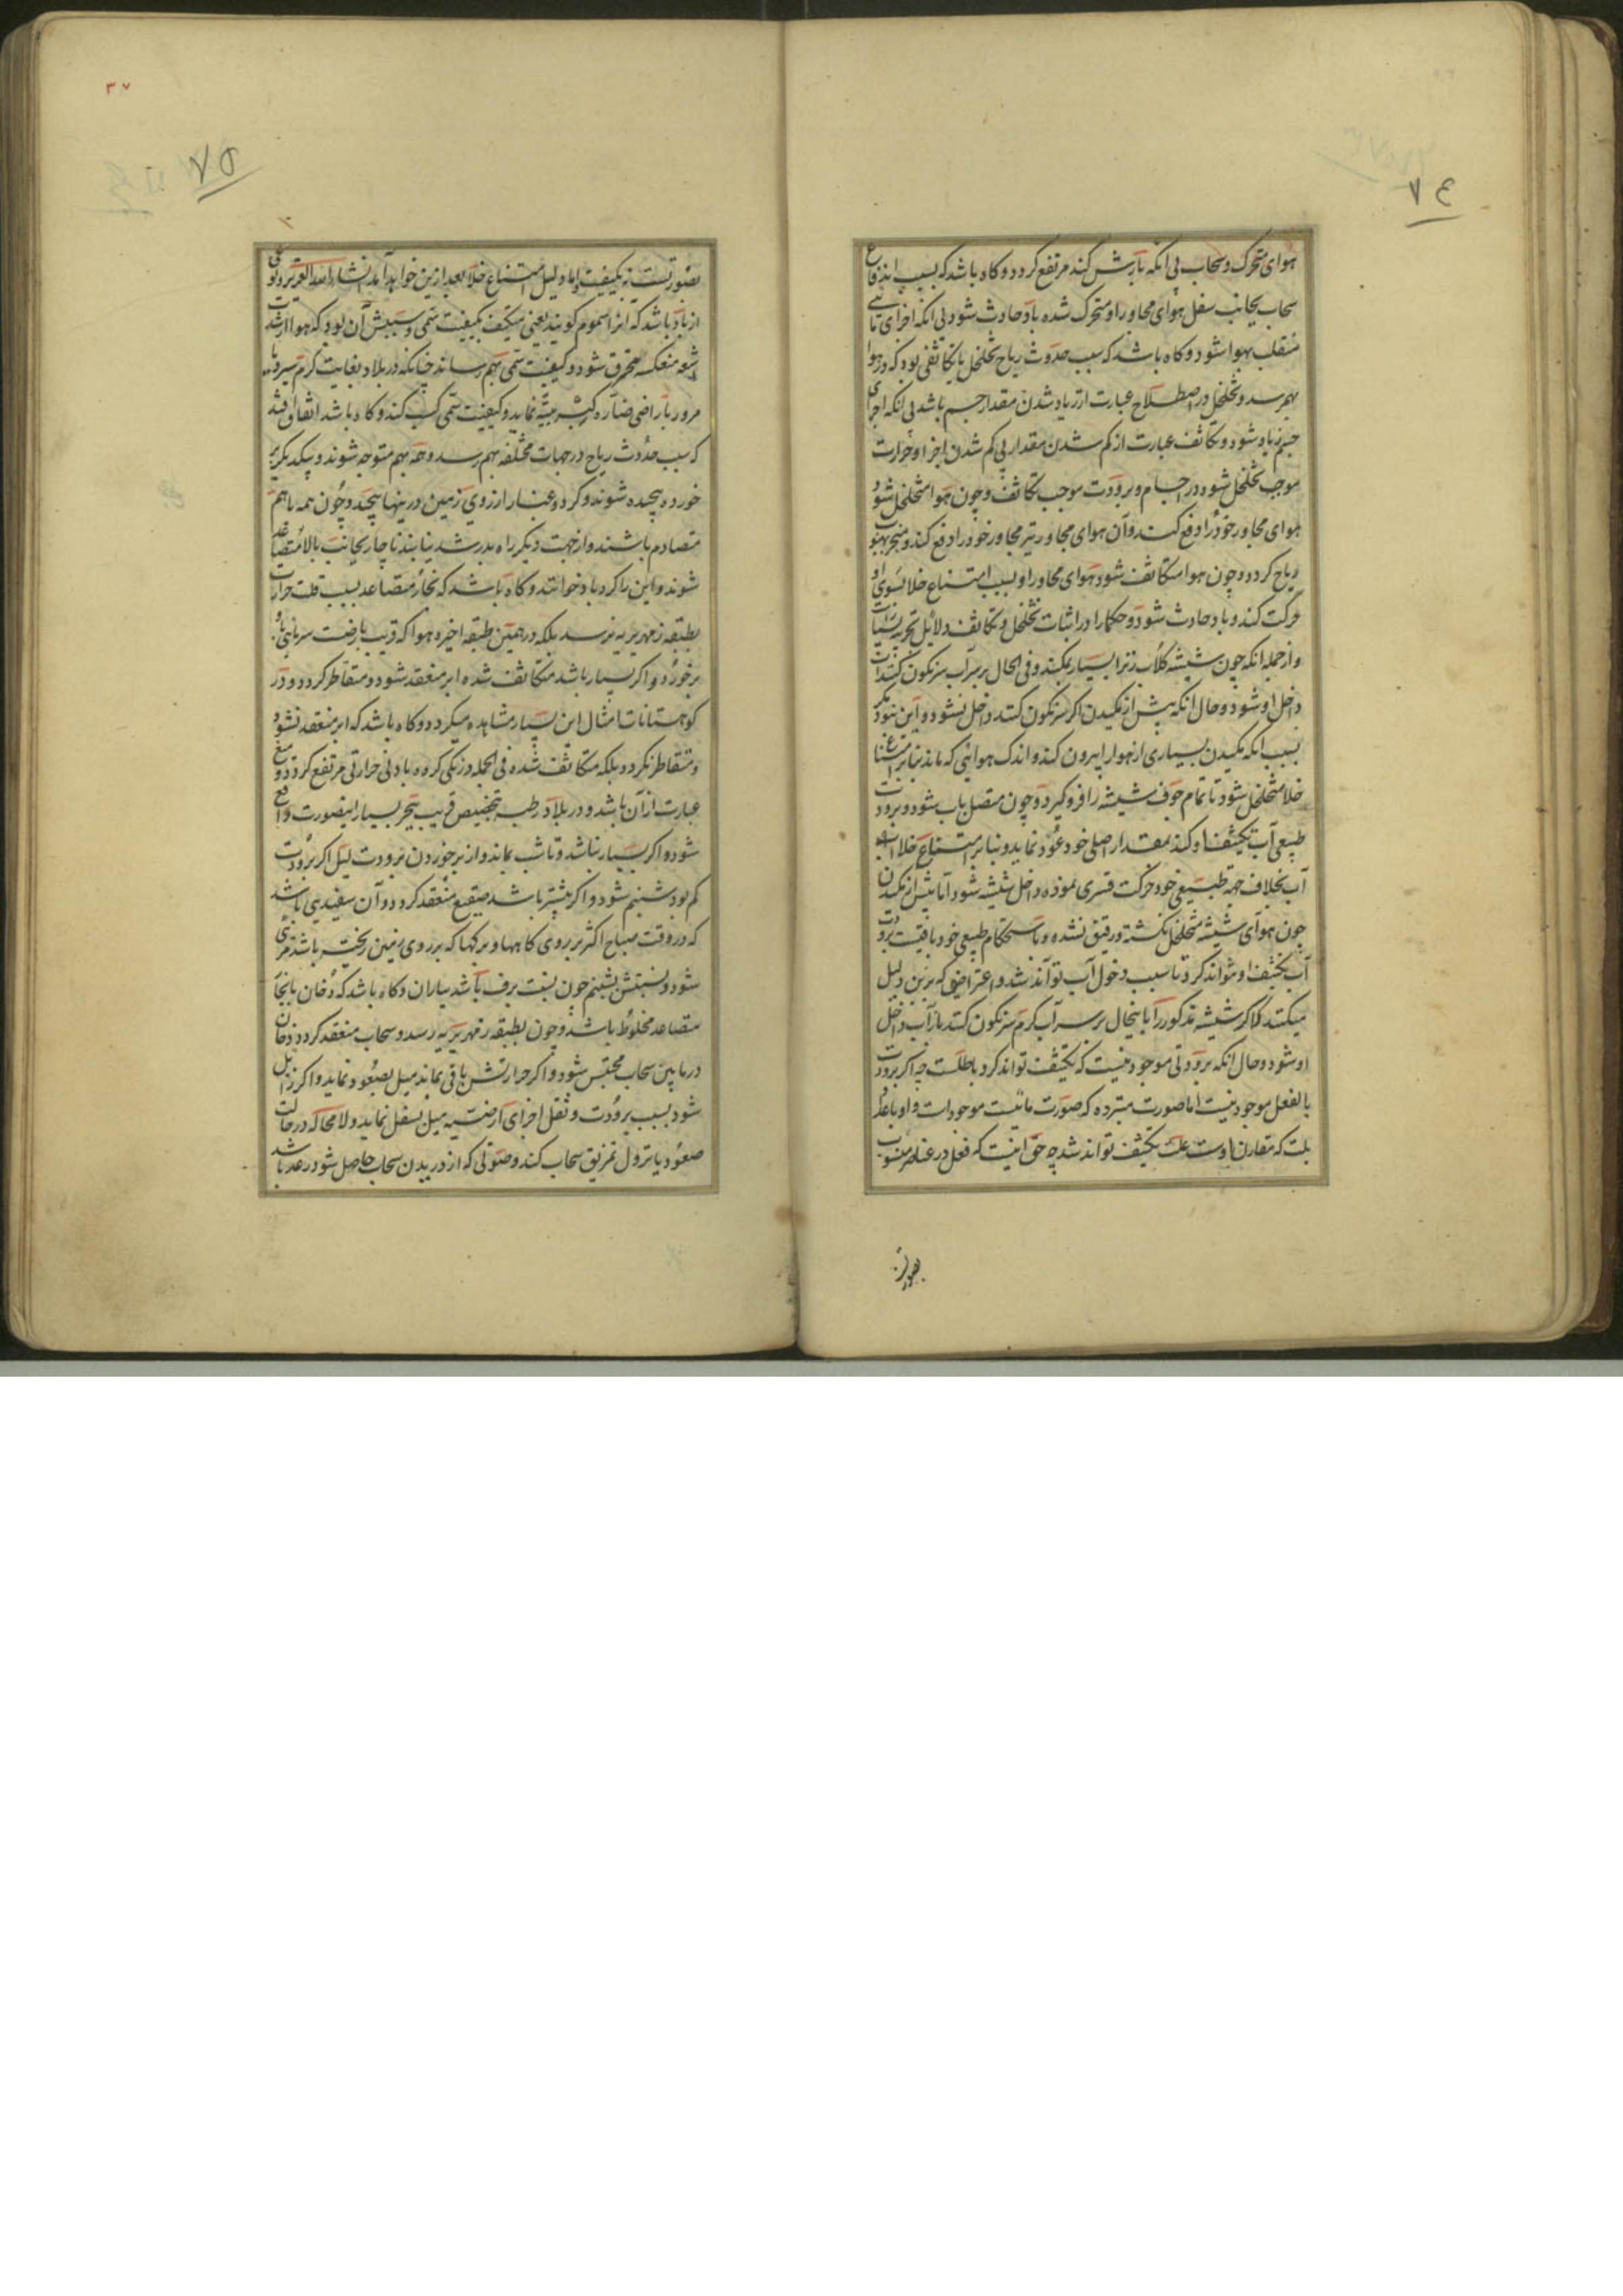 ٧٤
هوای متحرک و سحاب بی آنکه بارش کند مرتفع گردد و گاه باشد که بسبب اندفاع
سحاب بجانب سفل هوای مجاور او متحرک شده باد حادث شود بی آنکه اجزای مائیه
منقلب بهوا شود و گاه باشد که سبب حدوث ریاح تخلخل یا تکاثفی بود که در هوا
بهمرسد و تخلخل در اصطلاح عبارت از زیاد شدن مقدار جسم باشد بی آنکه اجزای
جسم زیاد شود و تکاثف عبارت از کم شدن مقدار بی کم شدن اجزا و حرارت
موجب تخلخل شود در اجسام و برودت موجب تکاثف و چون هوا متخلخل شود
هوای مجاور خود را دفع کند و آن هوای مجاور نیز مجاور خود را دفع کند و منجر بهبوب
ریاح گردد و چون هوا متکاثف شود هوای مجاور او بسبب امتناع خلا بسوی او
حرکت کند و باد حادث شود و حکما را در اثبات تخلخل و تکاثف دلائل تجربه بسیارست
و از جمله آنکه چون شیشه گلاب ریز را بسیار بمکند و فی الحال بر سر آب سرنگون کنند آب
داخل او شود و حال آنکه پیش از مکیدن اگر سرنگون کنند داخل نشود و این نبود مگر
بسبب آنکه مکیدن بسیاری از هوا را بیرون کند و اندک هوائی که ماند بنا بر امتناع
خلا متخلخل شود تا تمام جوف شیشه را فرو گیرد و چون متصل باب شود و برودت
طبیعی آب تکثیف او کند بمقدار اصلی خود عود نماید و بنا بر امتناع خلا
آب بخلاف جهه طبیعی خود حرکت قسری نموده داخل شیشه شود اما پیش از مکیدن
چون هوای شیشه متخلخل نگشته و رقیق نشده و باستحکام طبیعی خود باقیست برودت
آب تکثیف او نتواند کرد تا سبب دخول آب تواند شد و اعتراضی که برین دلیل
میکنند که اگر شیشه مذکور را باینحال بر سر آب گرم سرنگون کنند باز آب داخل
او شود و حال آنکه برودتی موجود نیست که تکثیف تواند کرد باطلست چه اگر برودت
بالفعل موجود نیست اما صورت مبرده که صورت مائیست موجود است و او باعداد
که مقارن اوست علت تکثیف تواند شد چه حق اینست که فعل در عناصر منسوب
بصورتست
٣٧
٧٥
بصورتست نه بکیفیت و اما دلیل امتناع خلا بعد ازین خواهد آمد انشاء الله العزیز و نوعی
از باد باشد که آنرا سموم گویند یعنی متکیف بکیفیت سمی و سببش آن بود که هوا از شدت
اشعه منعکسه محترق شود و کیفیت سمی بهم رساند چنانکه در بلاد بغایت گرم سیر و یا
مرور باراضی ضاره نماید و کیفیت سمی کسب کند و گاه باشد اتفاق افتد
که سبب حدوث ریاح در جهات مختلفه بهم رسد و همه بهم متوجه شوند و بیکدیگر بر
خورده پیچیده شوند و گرد و غبار از روی زمین در ینها پیچد و چون همه باهم
متصادم باشند و از جهت دیگر راه بدر شد نیابند ناچار بجانب بالا متصاعد
شوند و این را گردباد خوانند و گاه باشد که بخار متصاعد بسبب قلت حرارت
بطبقه زمهریریه نرسد بلکه در همین طبقه اخیره هوا که قریب بارضست سرمائی باو
برخورد و اگر بسیار باشد متکاثف شده ابر منعقد شود و متقاطر گردد و در
کوهستانات امثال این بسیار مشاهده میگردد و گاه باشد که ابر منعقد نشود
و متقاطر نگردد بلکه متکاثف شده فی الجمله درنگی کرده بادنی حرارتی مرتفع گردد و میغ
عبارت از آن باشد و در بلاد رطبه بتخصیص قریب ببحر بسیار اینصورت واقع
شود و اگر بسیار نباشد و تا شب بماند و از برخوردن برودت لیل اگر برودت
کم بود شبنم شود و اگر بیشتر باشد صقیع منعقد گردد و آن سفیدیی باشد
که در وقت صباح اکثر بر روی کاهها و برگها که بر روی زمین ریخته باشد مرئی
شود و نسبتش بشبنم چون نسبت برف باشد بباران و گاه باشد که دخان با بخار
متصاعد مخلوط باشد و چون بطبقه زمهریریه رسد و سحاب منعقد گردد دخان
در مابین سحاب محتبس شود و اگر حرارتش باقی بماند میل بصعود نماید و اگر زایل
شود بسبب برودت و ثقل اجزای ارضیه میل بسفل نماید و لا محاله در حالت
صعود یا نزول تمزیق سحاب کند و صوتی که از دریدن سحاب حاصل شود رعد باشد